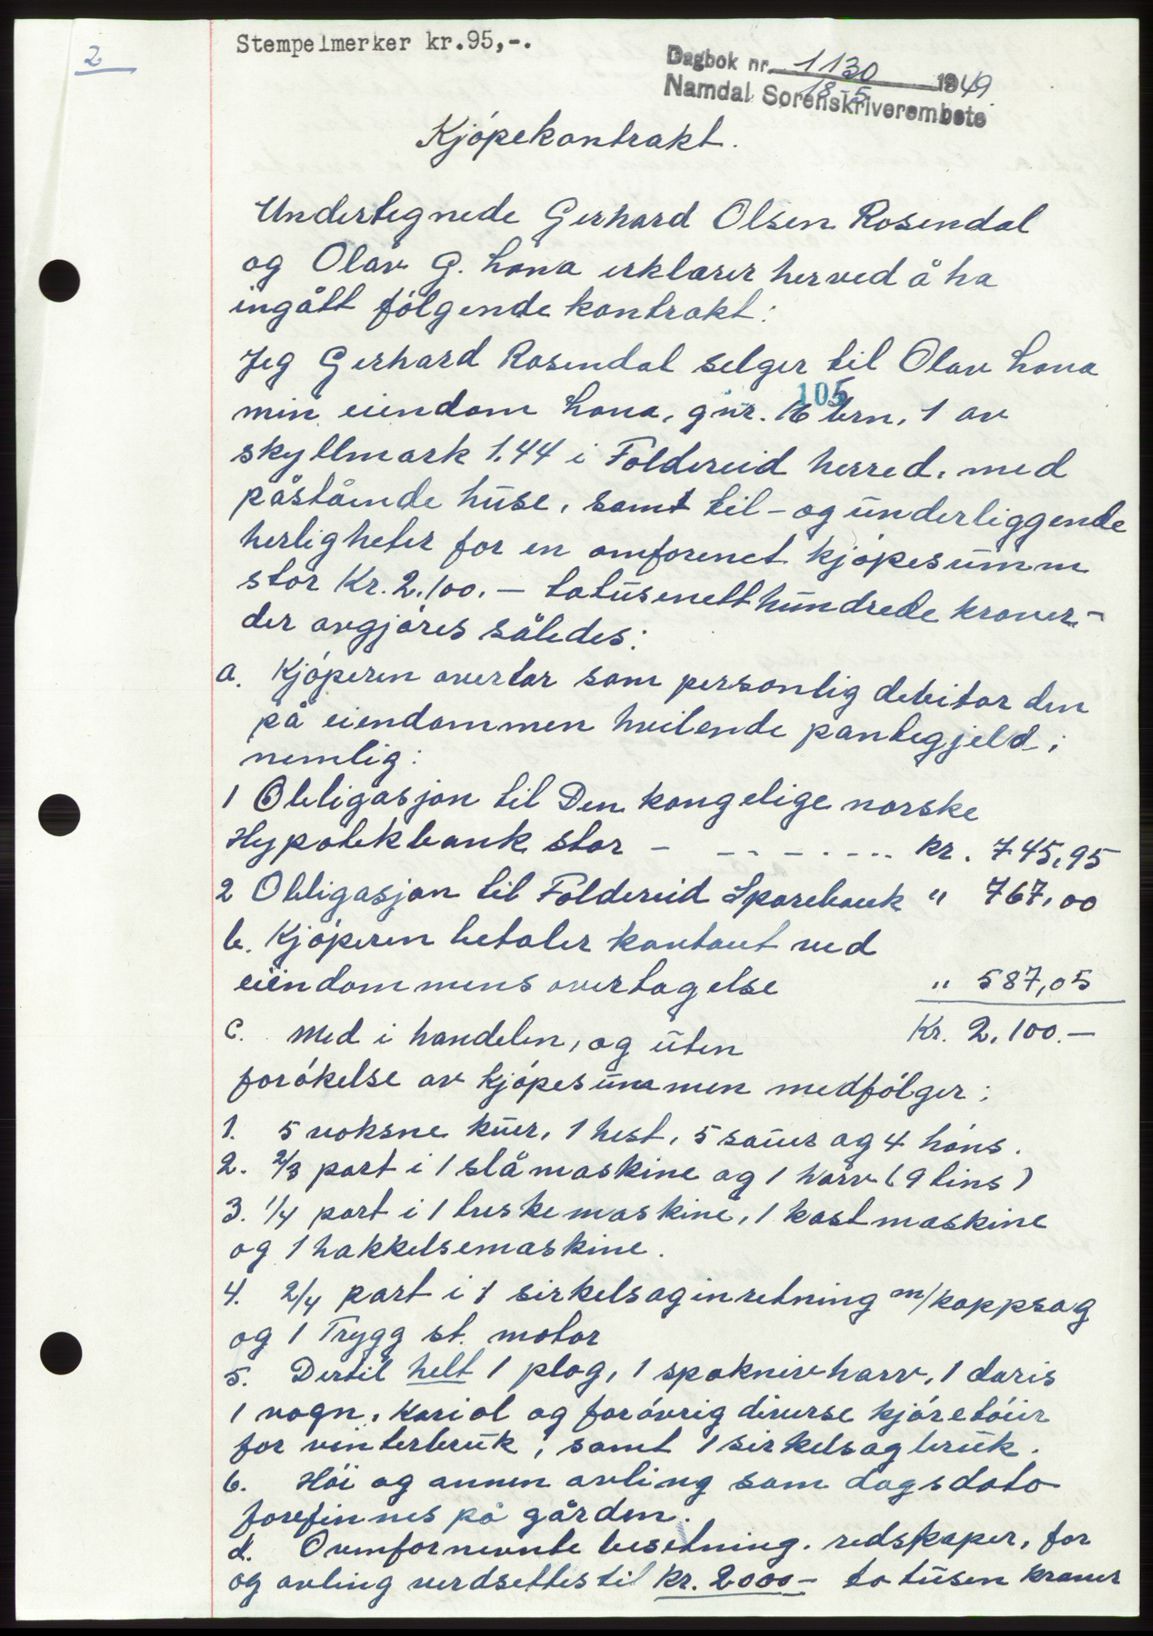 2
Stempelmerker kr.95,-.
Dagbok nr. 1130 1949
18-5
Namdal Sorenskriverembete
Kjöpekontrakt.
Undertegnede Gerhard Olsen Rosendal
og Olav G. Lona erklærer herved å ha
ingått følgende kontrakt:
Jeg Gerhard Rosendal selger til Olav Lona
105
min eiendom Lona, gnr. 16 brn. 1 av
skyllmark 1.44 i Foldereid herred, med
påstående huse, samt til- og underliggende
herligheter for en omforenet kjöpesumm
stor Kr. 2.100.- totusenetthundrede kroner-
der avgjöres således:
a. Kjöperen overtar som personlig debitor den
på eiendommen hvilende pantegjeld;
nemlig:
1 Obligasjon til Den kongelige norske
Hypotekbank stor - - - - - - - kr. 745,95
2 Obligasjon til Foldereid Sparebank " 767,00
b. Kjöperen betaler kontant ved
eiendommens overtagelse " 587,05
Kr. 2.100.-
c. Med i handelen, og uten
forökelse av kjöpesummen medfölger:
1. 5 voksne kuer, 1 hest, 5 sauer og 4 höns.
2. 2/3 part i 1 slåmaskine og 1 harv (9 tins)
3. 1/4 part i 1 treskemaskine, 1 kastmaskine
og 1 hakkelsemaskine.
4. 2/4 part i 1 sirkelsaginretning m/kappsag
og 1 Trygg st. motor
5. Dertil helt 1 plog, 1 spaknivharv, 1 daris
1 vogn, Kariol og foröverig diverse kjöretöier
for vinterbruk, samt 1 sirkelsagbruk.
6. Höi og annen avling som dagsdato
forefinnes på gården.
d. Ovenfornevnte besetning, redskaper, for
og avling verdsettes til kr. 2000- to tusen kroner